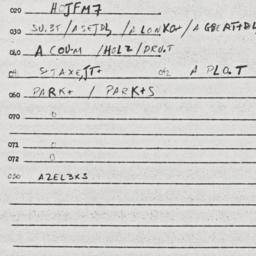 020 HOJFM7
030 SU.3T / ASETDL / A LONKO+ / A GBERT+DL
040 A COUM / HOLZ / DRU.T
041 STAXE,TT+ 042 A PLO.T
060 PARK+ / PARK+S
070 0
071 0
072 0
080 AZEL3KS